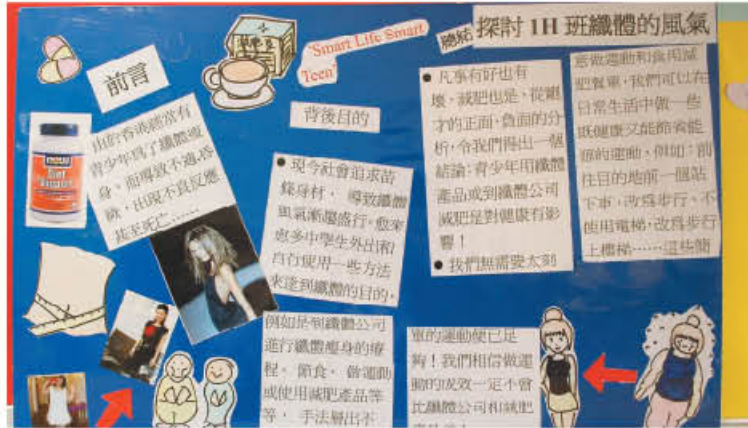 探討 1H 班纖體的風氣
"Smart Life Smart
Teen"
總結
前言
由於香港經常有
青少年為了纖體瘦
身。而導致不適、昏
厥，出現不良反應
甚至死亡……
NOW
Diet
背後目的
● 現今社會追求苗
條身材， 導致纖體
風氣漸趨盛行。愈來
愈多中學生外出和
自行使用一些方法
來達到纖體的目的。
例如是到纖體公司
進行纖體瘦身的療
程、節食、做運動
或使用減肥產品等
等， 手法層出不
● 凡事有好也有
壞，減肥也是，從剛
才的正面、負面的分
析，令我們得出一個
結論：青少年用纖體
產品或到纖體公司
減肥是對健康有影
響！
● 我們無需要太刻
意做運動和食用減
肥餐單，我們可以在
日常生活中做一些
既健康又能節省能
源的運動，例如：前
往目的地前一個站
下車，改為步行、不
使用電梯，改為步行
上樓梯……這些簡
單的運動便已足
夠！我們相信做運
動的成效一定不會
比纖體公司和減肥